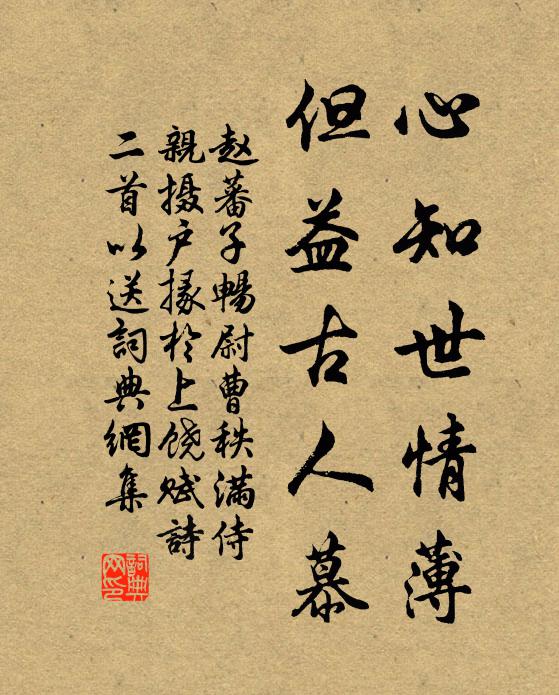 心知世情薄
但益古人慕
赵蕃子暢尉曹秩满侍
親摄户掾於上饶赋詩
二首以送詞典網集
詞典网印